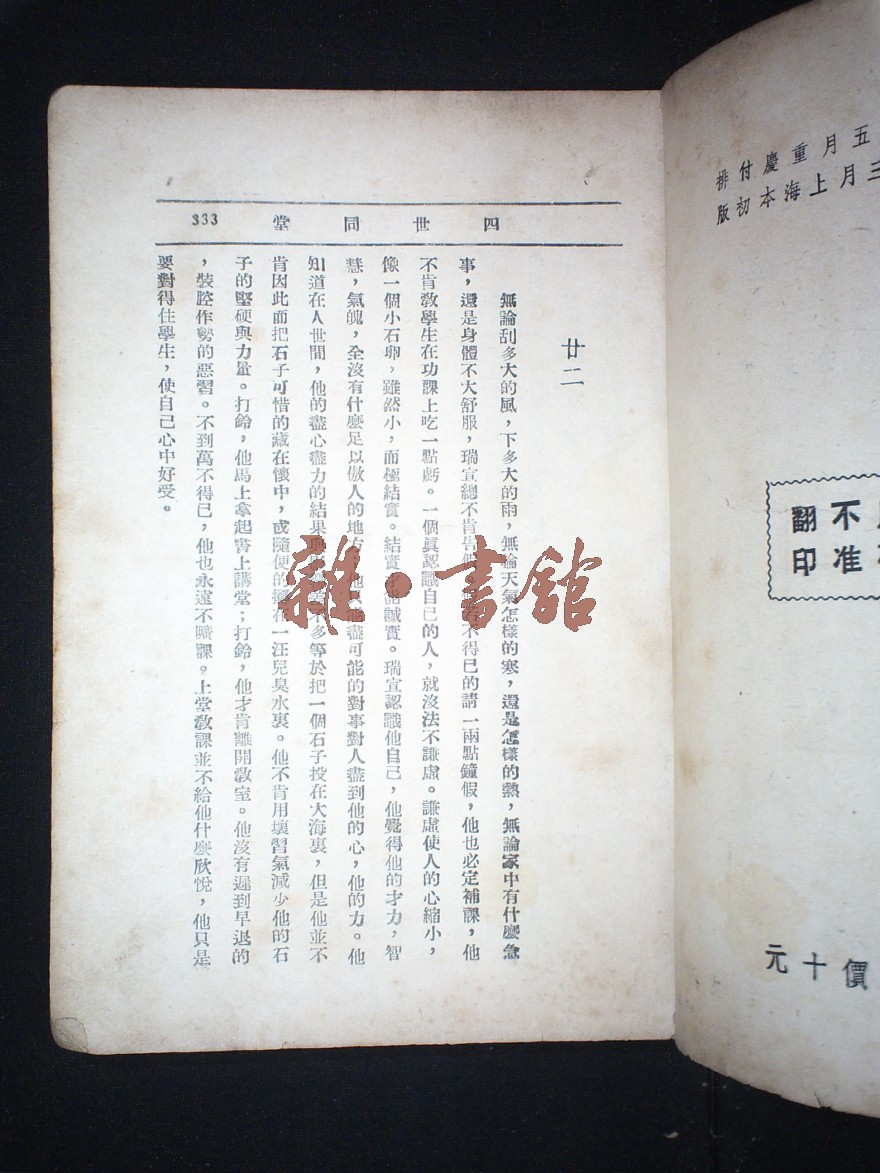 五月重慶付排
三月上海本初版
不准
翻印
價十元
四世同堂 333
廿二
無論刮多大的風，下多大的雨，無論天氣怎樣的寒，還是怎樣的熱，無論家中有什麼急
事，還是身體不大舒服，瑞宣總不肯告假。不得已的請一兩點鐘假，他也必定補課，他
不肯敎學生在功課上吃一點虧。一個眞認識自己的人，就沒法不謙虛。謙虛使人的心縮小，
像一個小石卵，雖然小，而極結實。結實才能誠實。瑞宣認識他自己，他覺得他的才力，智
慧，氣魄，全沒有什麼足以傲人的地方；他盡可能的對事對人盡到他的心，他的力。他
知道在人世間，他的盡心盡力的結果不多等於把一個石子投在大海裏，但是他並不
肯因此而把石子可惜的藏在懷中，或隨便的擲在一汪兒臭水裏。他不肯用壞習氣減少他的石
子的堅硬與力量。打鈴，他馬上拿起書上講堂；打鈴，他才肯離開敎室。他沒有遲到早退的
，裝腔作勢的惡習。不到萬不得已，他也永遠不曠課。上堂敎課並不給他什麼欣悅，他只是
要對得住學生，使自己心中好受。
雜·書舘